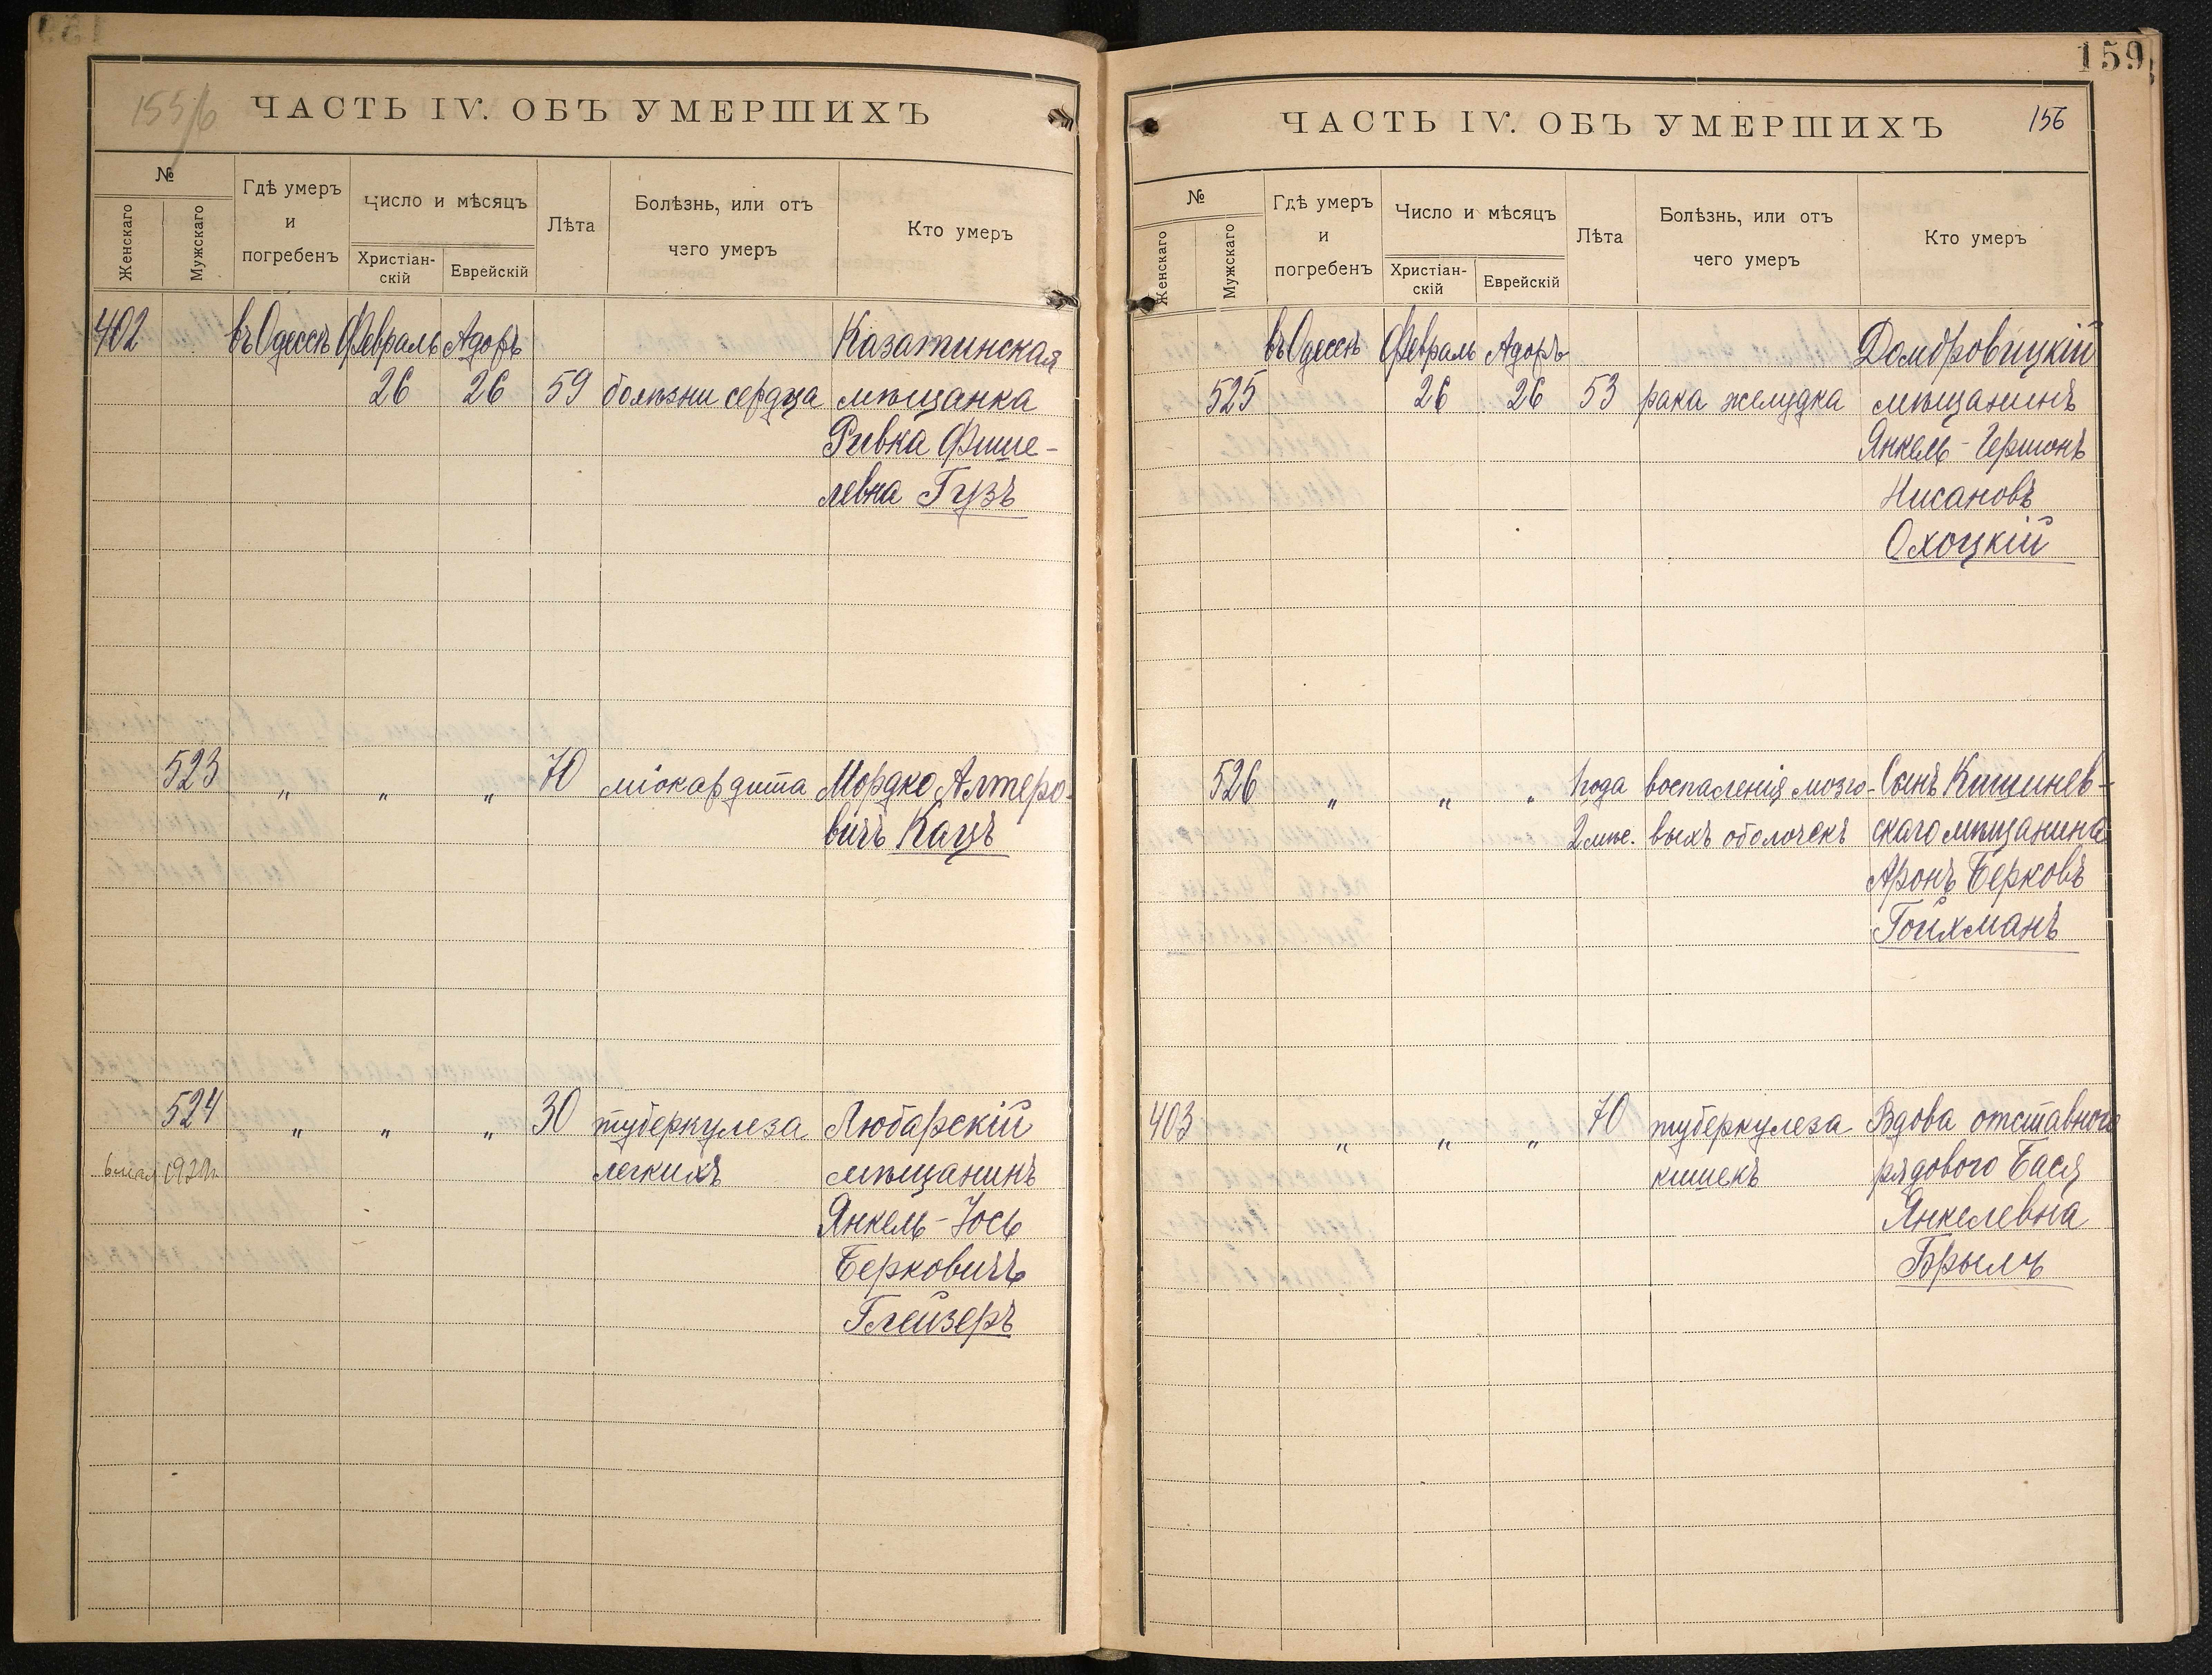 155/6
ЧАСТЬ IV. ОБЪ УМЕРШИХЪ
№
Женскаго
Мужскаго
Гдѣ умеръ и погребенъ
Число и мѣсяцъ
Христіан-
скій
Еврейскій
Лѣта
Болѣзнь, или отъ
чего умеръ
Кто умеръ
402 въ Одессѣ Февраль Адоръ Казатинская
26 26 59 болѣзни сердца мѣщанка
Ривка Фише-
левна Гузъ
523 „ „ „ 70 міокардита Мордко Алтеро-
вичъ Кацъ
524 „ „ „ 30 туберкулеза Любарскій
6 мая легкихъ мѣщанинъ
Янкель-Іось
Берковичъ
Глейзеръ
159
ЧАСТЬ IV. ОБЪ УМЕРШИХЪ 156
№
Женскаго
Мужскаго
Гдѣ умеръ
и
погребенъ
Число и мѣсяцъ
Христіан-
скій
Еврейскій
Лѣта
Болѣзнь, или отъ
чего умеръ
Кто умеръ
въ Одессѣ Февраль Адоръ Домбровицкій
525 26 26 53 рака желудка мѣщанинъ
Янкель-Гершонъ
Нисановъ
Охоцкій
526 „ „ „ 1 года воспаленія мозго- Сынъ Кишинев-
2 мѣс. выхъ оболочекъ скаго мѣщанина
Аронъ Берковъ
Гойхманъ
403 „ „ „ 70 туберкулеза Вдова отставного
кишекъ рядового Бася
Янкелевна
Брылъ